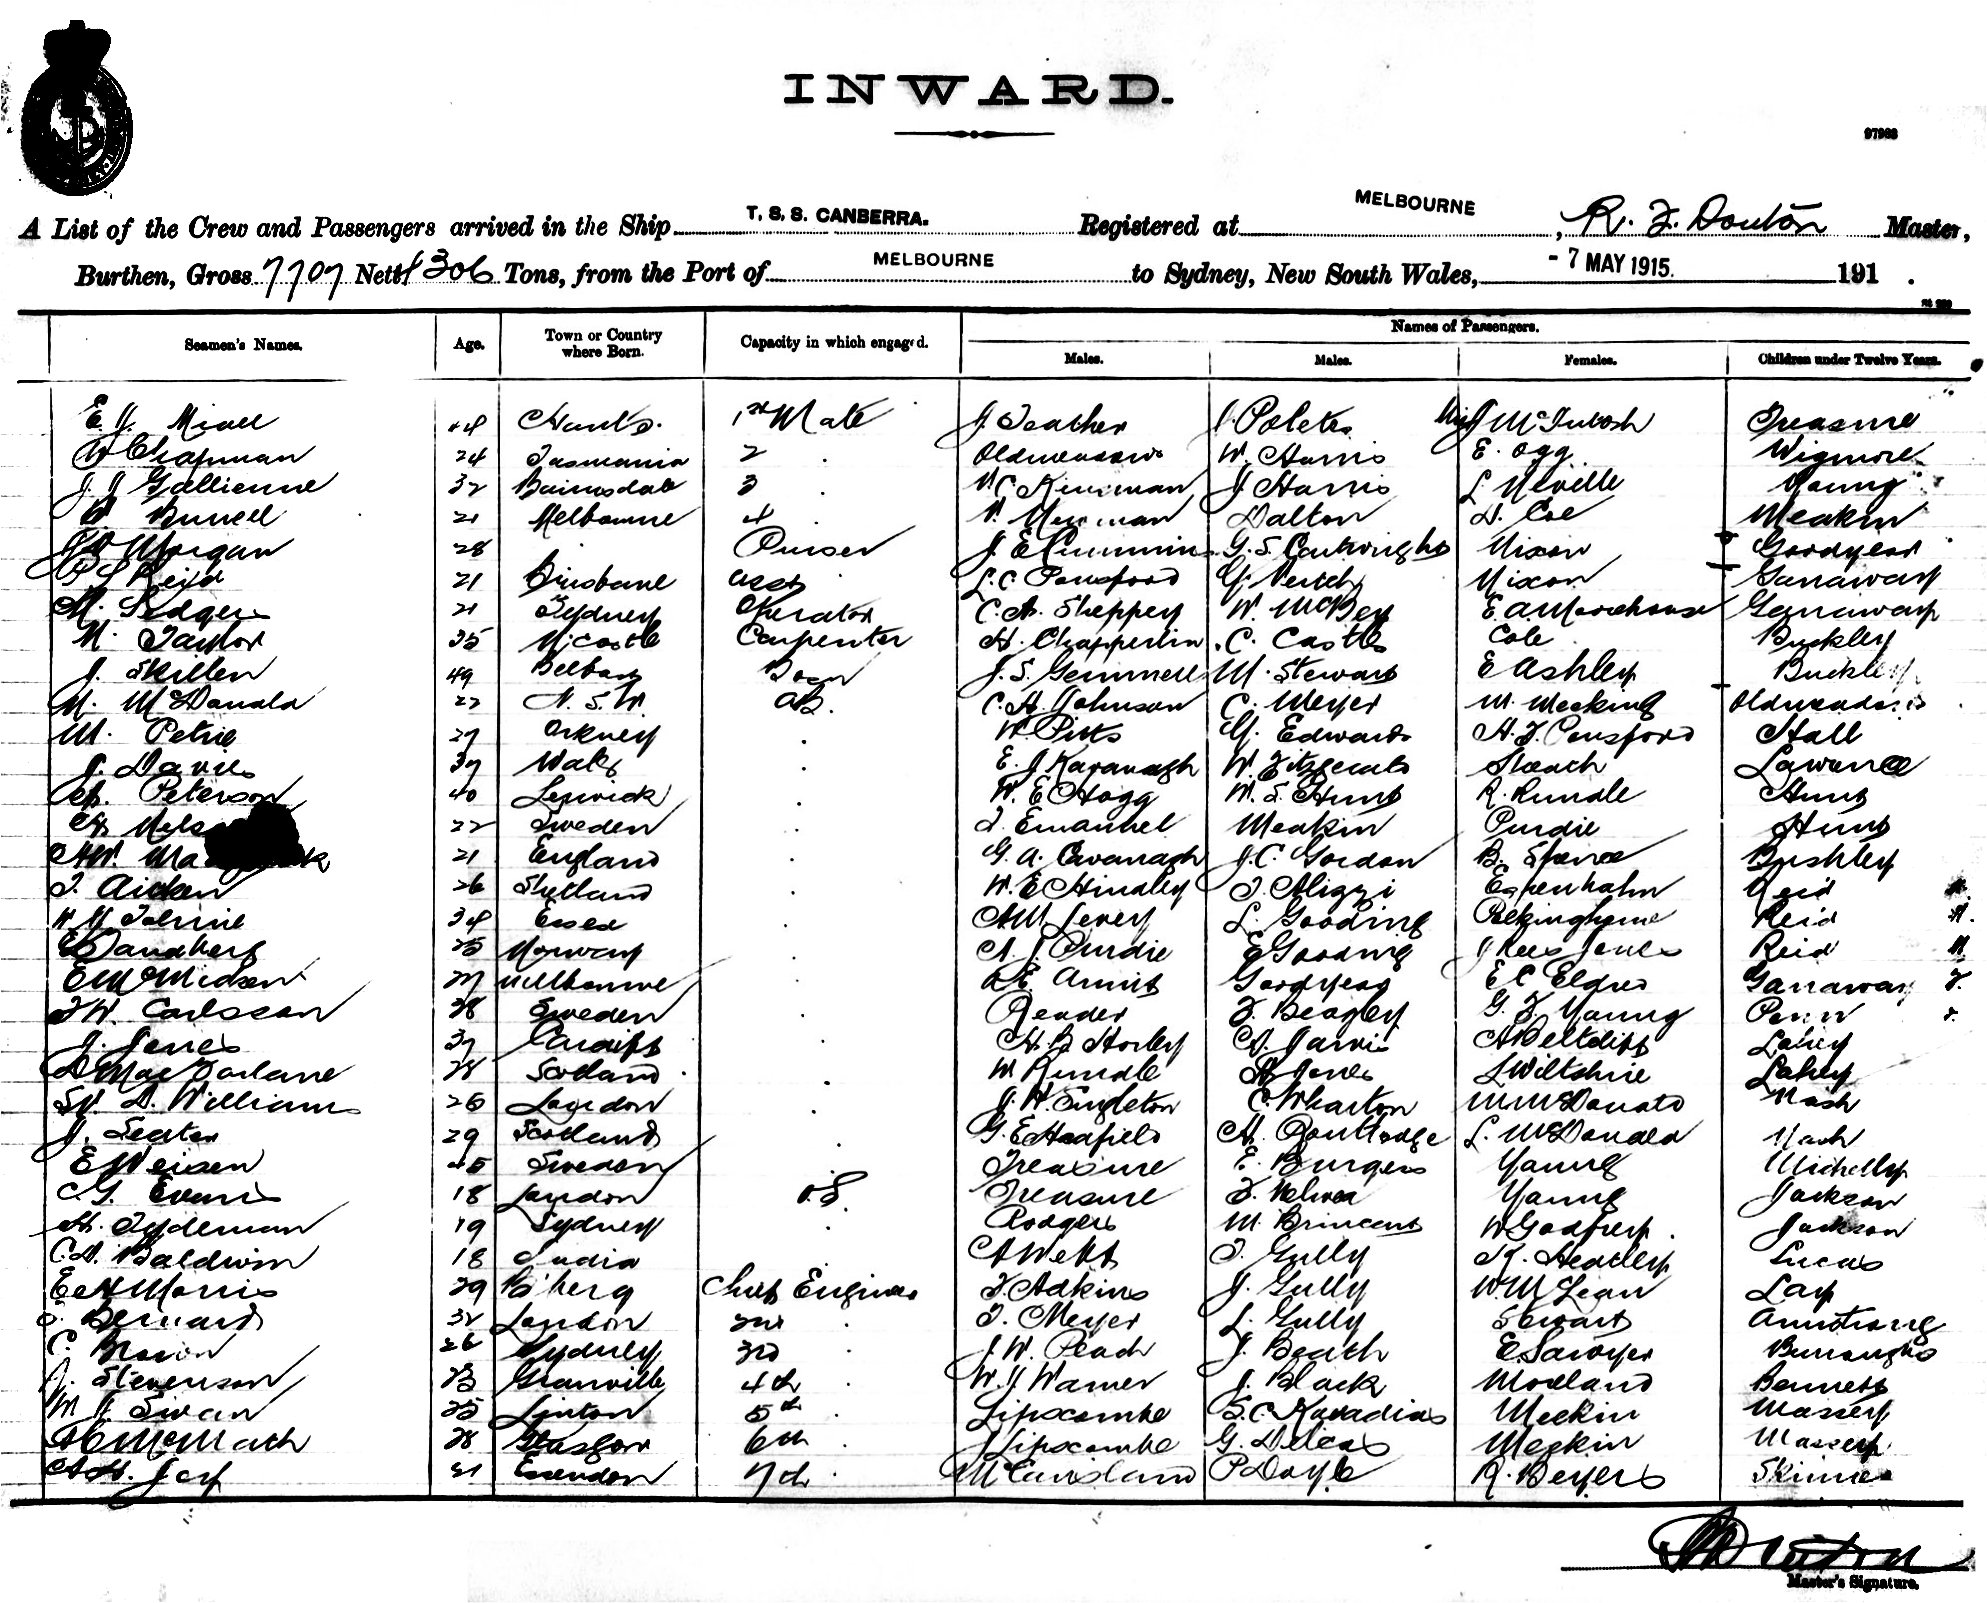 INWARD.
97963
A List of the Crew and Passengers arrived in the Ship T. S. S. CANBERRA. Registered at MELBOURNE, R. F. Douton Master,
Burthen, Gross 7707 Nett 4306 Tons, from the Port of MELBOURNE to Sydney, New South Wales, - 7 MAY 1915. 191 .
Seamen's Names. Age. Town or Country where Born. Capacity in which engaged. Names of Passengers.
Males. Males. Females. Children under Twelve Years.
E. J. Miall 44 Hants. 1st Mate J Teather J Poletes Miss J McIntosh Treasure
W Chapman 24 Tasmania 2 . Oldmeadow W. Harris E. Ogg Wigmore
J. J Gallienne 32 Bairnsdale 3 . J Harris L Neville Young
21 Melbourne 4 . Dalton D. Coe Meakin
Morgan 28 Purser J. E Cummins G. S. Cartwright Nixon Goodyear
Reid 21 Brisbane asst L. C. Ponsford Nixon Garraway
21 Sydney Operator C. A. Sheppey W. McKey E. A. Moorehouse Garraway
M. Taylor 35 N'castle Carpenter H. Chapperlin C. Castle Cole Buckley
J. Skillen 49 Belfast Bosn J. S. Gemmell M. Stewart E Ashley Buckley
M. McDonald 22 N. S. W AB. C. A. Johnson C. Meyer M. Meeking Oldmeadows
M. Petrie 27 Orkney . W. Pitts Edwards H. F. Ponsford Hall
J. Davies 37 Wales . E. J Kavanagh W. Fitzgerald Sleach Lawrence
Peterson 40 Lerwick . W. E Hogg W. S. Hunt R. Rundle Hunt
22 Sweden . Emanuel Meakin Purdie Hunt
21 England . G. A. Cavanagh J. C. Gordon B. Spence Bushley
T. Aicken 26 Shetland . W. E Hindley Reid
34 Essex . A. W. Levey L. Gooding Reid M.
Sandberg 25 Norway . A. J. Purdie E Gooding J Rees Jones Reid M.
27 Melbourne . Goodyear Garraway F.
F W. Carlsson 28 Sweden . Reader F. Beagley G. F. Young Penn
J. Jones 37 Cardiff . H. B Horley A. Jarvis Lahey
D MacFarlane 28 Scotland . W Rundle A Jones L Wiltshire Lahey
W. D. Williams 26 London . J. W. Singleton C. Wharton M. McDonald Nash
J. Leater 29 Scotland . G. E Hadfield A. Routledge L. McDonald Nash
E Neisen 45 Sweden Treasure E. Burgess Young
C. G. Evans 18 London O.S. Treasure Young Jackson
H. Tydeman 19 Sydney . Rodgers W Godfrey . Jackson
C. A. Baldwin 18 India A Webb T. Gully K. Headley Lucas
E A Morris 39 Chief Engineer F. Adkins J. Gully W. McLean Lay
Bernard 32 London 2nd . T. Meyer L. Gully Stewart Armstrong
C. Brown 26 Sydney 3rd J. W. Peach J. Beath E. Sawyer Burroughs
J. Stevenson 23 Granville 4th . W. J Warner J. Black Morland Bennett
M J Swan 25 Linton 5th Lipscombe S. C. Kavadias Meekin Massey
McMath 28 Glasgow 6th . J Lipscombe G. Delcas Meekin Massey
A. H. Jay 21 Essendon 7th . P Doyle R. Beyers Skinner
Master's Signature.